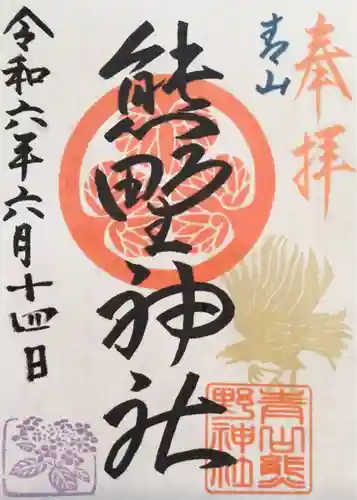 奉拝
青山
熊野神社
令和六年六月十四日
青山熊
野神社